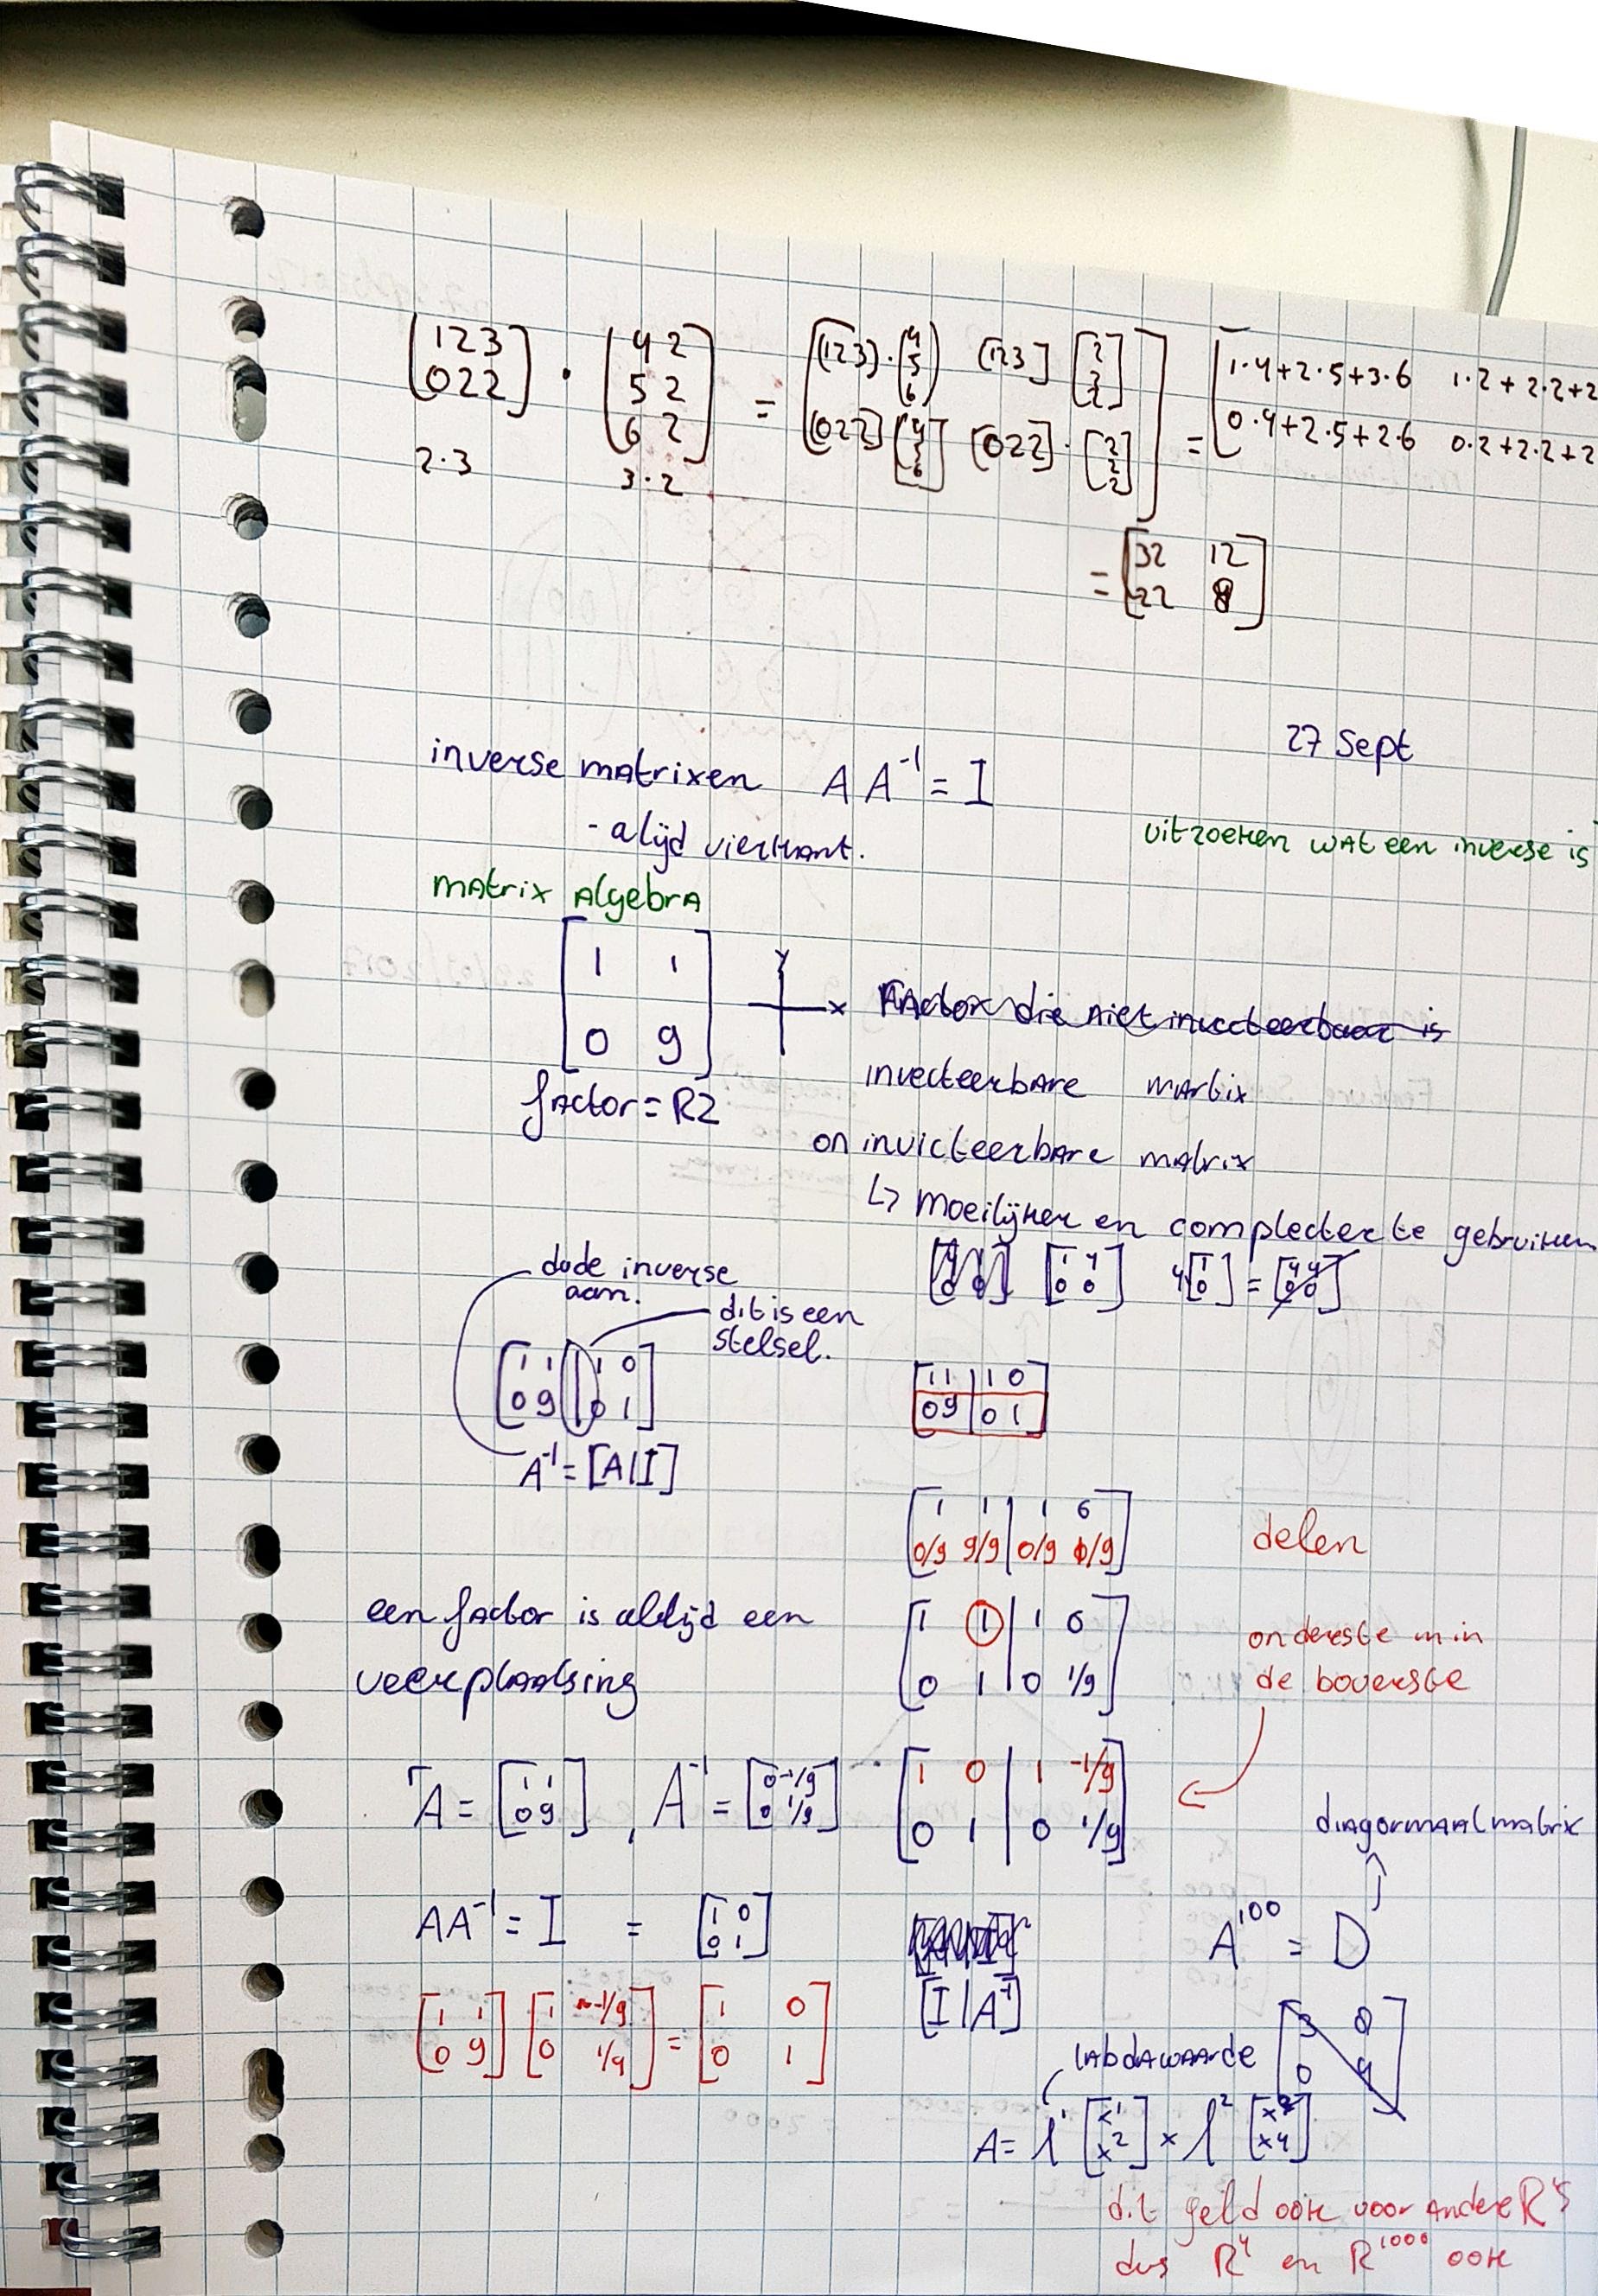 [1 2 3; 0 2 2] · [4 2; 5 2; 6 2] = [[1 2 3]·[4 5 6] [1 2 3][2 2 2]; [0 2 2][4 5 6] [0 2 2]·[2 2 2]] = [1·4+2·5+3·6 1·2+2·2+2; 0·4+2·5+2·6 0·2+2·2+2
2·3 3·2
= [32 12; 22 8]
27 Sept
inverse matrixen A A⁻¹ = I
- alijd vierkant.
uitzoeken wat een inverse is
matrix Algebra
[1 1; 0 9]
y
x
factor = R2
FActor die niet invecteerbaar is
invecteerbare martix
on invicteerbare matrix
↳ moeilijker en complecter te gebruiken
[1 4; 0 0] 4[1; 0] = [4 4; 0 0]
dude inverse
aan.
dit is een
stelsel.
[1 1 | 1 0; 0 9 | 0 1]
A⁻¹ = [A|I]
[1 1 | 1 0; 0 9 | 0 1]
[1 1 | 1 6; 0/9 9/9 | 0/9 1/9]
delen
een factor is altijd een
veerplaatsing
[1 1 | 1 0; 0 1 | 0 1/9]
ondereste min
de boverste
[1 0 | 1 -1/9; 0 1 | 0 1/9]
A = [1 1; 0 9], A⁻¹ = [0 -1/9; 0 1/9]
diagormaalmatrix
AA⁻¹ = I = [1 0; 0 1]
A¹⁰⁰ = D
[I|A⁻¹]
[1 1; 0 9] [1 -1/9; 0 1/9] = [1 0; 0 1]
[3 0; 0 4]
labdawaarde
A = λ¹ [x1; x2] × λ² [x3; x4]
dit geld ook voor andere R's
dus R⁴ en R¹⁰⁰⁰ ook